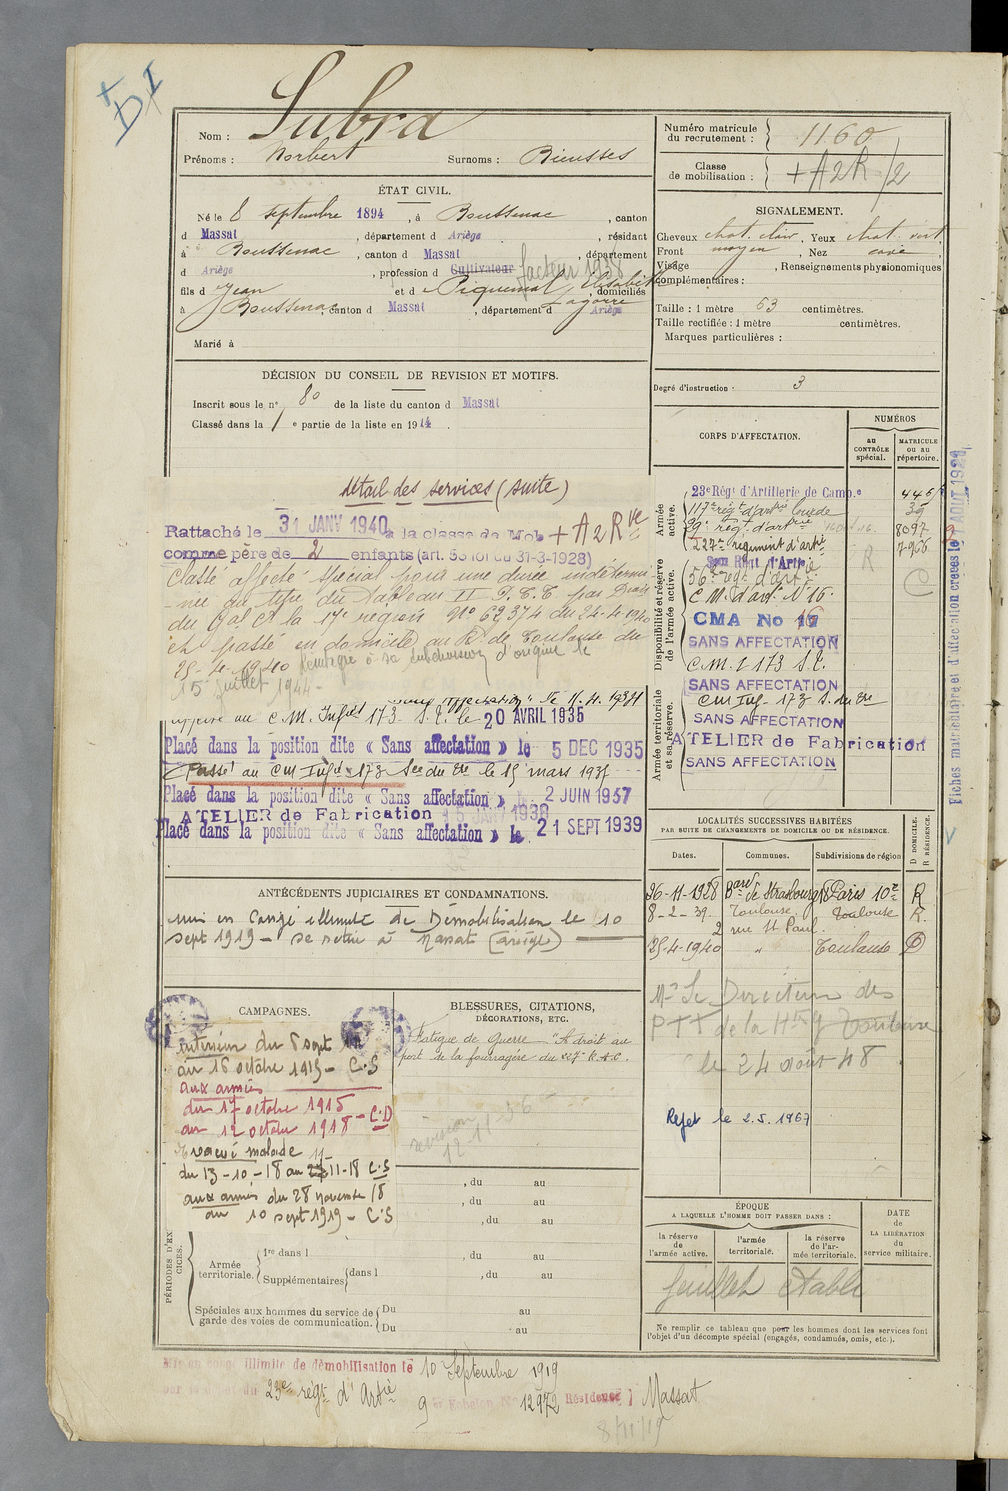 DI
Nom : Subra
Prénoms : Norbert Surnoms : Bieusses
Numéro matricule du recrutement : 1160
Classe de mobilisation : + A2R/2
ÉTAT CIVIL.
Né le 8 septembre 1894, à Boussenac, canton
d Massat, département d Ariège, résidant
à Boussenac, canton d Massat, département
d Ariège, profession d Cultivateur facteur 1938
fils d Jean et d Piquemal Elisabeth, domiciliés
Lagorre
à Boussenac, canton d Massat, département d Ariège
Marié à
SIGNALEMENT.
Cheveux chat. clair, Yeux chat. vert
Front moyen, Nez cave
Visage , Renseignements physionomiques
complémentaires :
Taille : 1 mètre 63 centimètres.
Taille rectifiée : 1 mètre centimètres.
Marques particulières :
Degré d'instruction : 3
DÉCISION DU CONSEIL DE REVISION ET MOTIFS.
Inscrit sous le n° 80 de la liste du canton d Massat
Classé dans la 1 e partie de la liste en 1914.
Détail des services (suite)
Rattaché le 31 JANV 1940 à la classe de Mob + A2Rve
comme père de 2 enfants (art. 58 loi du 31-3-1928)
Classé affecté spécial pour une durée indétermi
-née au titre du Tableau II P.T.T. par
du Gal Ct la 17e région No 62374 du 24-4-1940
et passé en domicile au Rt de Toulouse du
25-4-1940 Réintègre sa subdivision d'origine le
15 juillet 1944-
sans affectation le 11.4.1934
au C.M. Infrie 173 S.E. le 20 AVRIL 1935
Placé dans la position dite « Sans affectation » le 5 DEC 1935
Passé au CM Infie 173 Son du Tre le 15 mars 1937
Placé dans la position dite « Sans affectation » le 2 JUIN 1937
ATELIER de Fabrication 1938
Placé dans la position dite « Sans affectation » le 21 SEPT 1939
CORPS D'AFFECTATION.
NUMÉROS
au CONTRÔLE spécial.
MATRICULE OU AU répertoire.
Armée active.
Disponibilité et réserve de l'armée active.
Armée territoriale et sa réserve.
23e Régt d'Artillerie de Camp.e
117e régt d'artie lourde 39
29e régt d'artrie 8097
227e régiment d'artie 7966
56e régt d'artie
C.M. d'artie N° 16.
CMA No 17 16
SANS AFFECTATION
C.M. I 173 S.E.
SANS AFFECTATION
CM Inf- 173 S. du Tre
SANS AFFECTATION
ATELIER de Fabrication
SANS AFFECTATION
Fiches matriculaire et d'affectation créées le AOUT 1929
ANTÉCÉDENTS JUDICIAIRES ET CONDAMNATIONS.
mis en Congé illimité de Démobilisation le 10
sept 1919 - se retire à Massat (ariège)
LOCALITÉS SUCCESSIVES HABITÉES
PAR SUITE DE CHANGEMENTS DE DOMICILE OU DE RÉSIDENCE.
Dates. Communes. Subdivisions de région
D DOMICILE. R RÉSIDENCE.
26-11-1928 Bard de Strasbourg Paris 10e R
8-2-39. Toulouse Toulouse R.
2 rue St Paul.
25-4-1940 " Toulouse D
Mr Le Directeur des
PTT de la Hte G Toulouse
le 24 août 48
Rejet le 2.5.1967
CAMPAGNES.
Intérieur du 8 sept
au 16 octobre 1915 - C.S
aux armées
du 17 octobre 1915
au 12 octobre 1918 - C.D
Evacué malade
du 13-10-18 au 27-11-18 C.S
aux armées du 28 novembre 18
au 10 sept 1919 - C.S
BLESSURES, CITATIONS,
DÉCORATIONS, ETC.
Fatigue de Guerre - "A droit au
port de la fourragère du 227e R.A.C.
revision
12-11-56
, du au
, du au
, du au
PÉRIODES D'EXERCICES.
Armée territoriale.
1re dans l , du au
Supplémentaires dans l , du au
Spéciales aux hommes du service de garde des voies de communication.
Du au
Du au
ÉPOQUE
A LAQUELLE L'HOMME DOIT PASSER DANS :
la réserve de l'armée active.
l'armée territoriale.
la réserve de l'armée territoriale.
DATE de LA LIBÉRATION du service militaire.
feuillet établi
Ne remplir ce tableau que pour les hommes dont les services font
l'objet d'un décompte spécial (engagés, condamnés, omis, etc.).
Mis en congé illimité de démobilisation le 10 Septembre 1919
par le dépôt du 23e régt d'Artie 9 e Echelon No 12972 Résidence : Massat
8/11/19